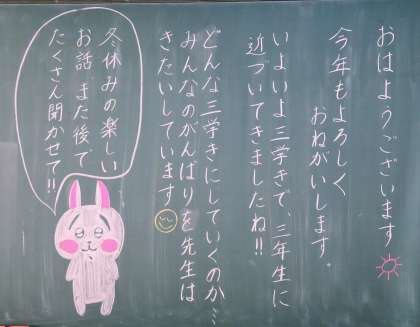 おはようございます
今年もよろしく
おねがいします。
いよいよ三学きで、三年生に
近づいてきましたね!!
どんな三学きにしていくのか…
みんなのがんばりを先生は
きたいしています
冬休みの楽しい
お話、また後で
たくさん聞かせて!!